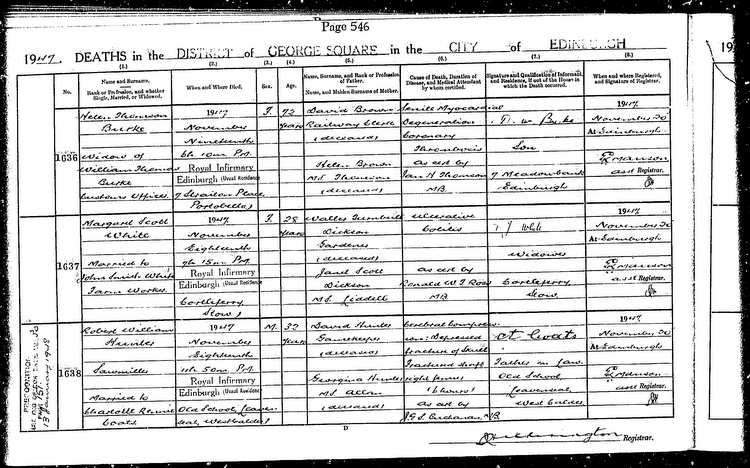 Page 546
1947. DEATHS in the DISTRICT of GEORGE SQUARE in the CITY of EDINBURGH
(1.) (2.) (3.) (4.) (5.) (6.) (7.) (8.)
No.
Name and Surname.
Rank or Profession, and whether Single, Married, or Widowed.
When and Where Died.
Sex.
Age.
Name, Surname, and Rank or Profession of Father.
Name, and Maiden Surname of Mother.
Cause of Death, Duration of Disease, and Medical Attendant by whom certified.
Signature and Qualification of Informant, and Residence, if out of the House in which the Death occurred.
When and where Registered, and Signature of Registrar.
1636
Helen Thomson
Burke
Widow of
William Thomas
Burke
Customs Officer
1947
November
Nineteenth
6h 10m P.M.
Royal Infirmary
Edinburgh (Usual Residence
7 Straiton Place
Portobello)
F.
72
years
David Brown
Railway Clerk
(deceased)
Helen Brown
M.S. Thomson
(deceased)
Senile Myocardial
Degeneration
Coronary
Thrombosis
as cert by
Ian H Thomson
M.B.
Burke
Son
7 Meadowbank
Edinburgh
1947
November 20
At Edinburgh
Manson
asst Registrar.
1637
Margaret Scott
White
Married to
John Smith White
Farm Worker
1947
November
Eighteenth
7h 15m P.M.
Royal Infirmary
Edinburgh (Usual Residence
Cortleferry,
Stow)
F.
28
years
Walter Turnbull
Dickson
Gardener
(deceased)
Janet Scott
Dickson
M.S. Liddell
Ulcerative
Colitis
as cert by
Ronald W. J Ross
M.B.
White
Widower
Cortleferry
Stow.
1947
November 20
At Edinburgh
Manson
asst Registrar.
1638
Robert William
Hunter
Sawmiller
Married to
Charlotte Rennie
Coats
1947
November
Eighteenth
11h 50m P.M.
Royal Infirmary
Edinburgh (Usual Residence
Old School,
West Calder)
M.
32
years
David Hunter
Gamekeeper
(deceased)
Georgina Hunter
M.S. Allan
(deceased)
Cerebral Compress-
ion: Depressed
fracture of Skull
Fractured shaft
right femur
(6 hours)
as cert by
J.G.S. Buchanan M.B.
Coats
Father in law.
Old School
West Calder
1947
November 20
At Edinburgh
Manson
asst Registrar.
13 January 1948
D
Registrar.